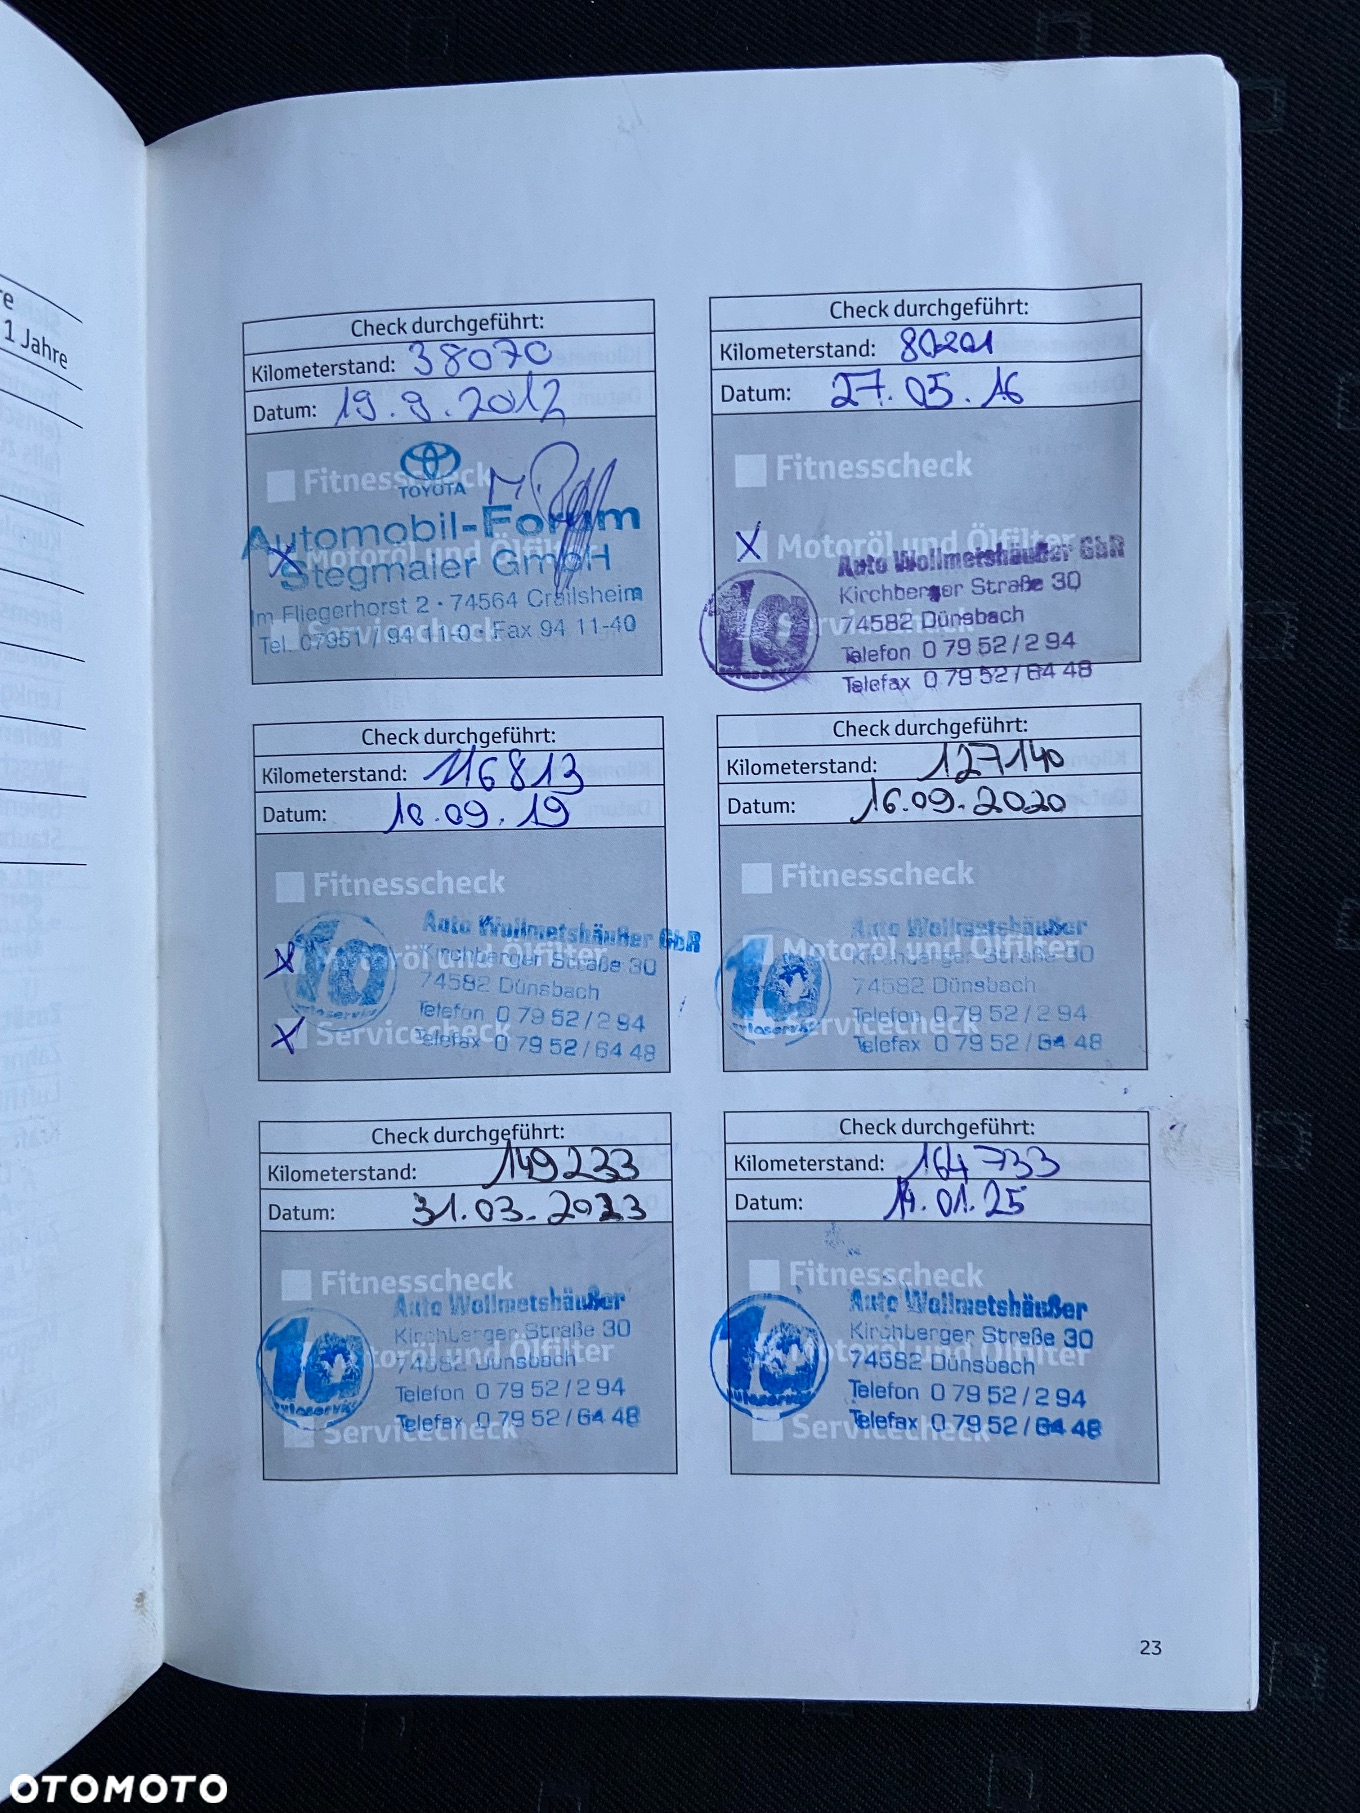 re
1 Jahre
Check durchgeführt:
Kilometerstand: 38070
Datum: 19.9.2012
Fitnesscheck
TOYOTA
Automobil-Forum
Motoröl und Ölfilter
Stegmaier GmbH
Im Fliegerhorst 2 · 74564 Crailsheim
Servicecheck
Tel. 07951 / 94 11-0 · Fax 94 11-40
Check durchgeführt:
Kilometerstand: 80201
Datum: 27.05.16
Fitnesscheck
X Motoröl und Ölfilter
Auto Wollmetshäußer GbR
Kirchberger Straße 30
1a
74582 Dünsbach
Servicecheck
Telefon 0 79 52 / 2 94
autoservice
Telefax 0 79 52 / 64 48
Check durchgeführt:
Kilometerstand: 116813
Datum: 10.09.19
Fitnesscheck
Auto Wollmetshäußer GbR
X Motoröl und Ölfilter
Kirchberger Straße 30
1a
74582 Dünsbach
autoservice
Telefon 0 79 52 / 2 94
X Servicecheck
Telefax 0 79 52 / 64 48
Check durchgeführt:
Kilometerstand: 127140
Datum: 16.09.2020
Fitnesscheck
Auto Wollmetshäußer
Motoröl und Ölfilter
Kirchberger Straße 30
1a
74582 Dünsbach
Telefon 0 79 52 / 2 94
autoservice
Servicecheck
Telefax 0 79 52 / 64 48
Check durchgeführt:
Kilometerstand: 149233
Datum: 31.03.2023
Fitnesscheck
Auto Wollmetshäußer
Kirchberger Straße 30
Motoröl und Ölfilter
1a
74582 Dünsbach
Telefon 0 79 52 / 2 94
autoservice
Telefax 0 79 52 / 64 48
Servicecheck
Check durchgeführt:
Kilometerstand: 164733
Datum: 14.01.25
Fitnesscheck
Auto Wollmetshäußer
Kirchberger Straße 30
Motoröl und Ölfilter
1a
74582 Dünsbach
Telefon 0 79 52 / 2 94
autoservice
Telefax 0 79 52 / 64 48
Servicecheck
23
OTOMOTO